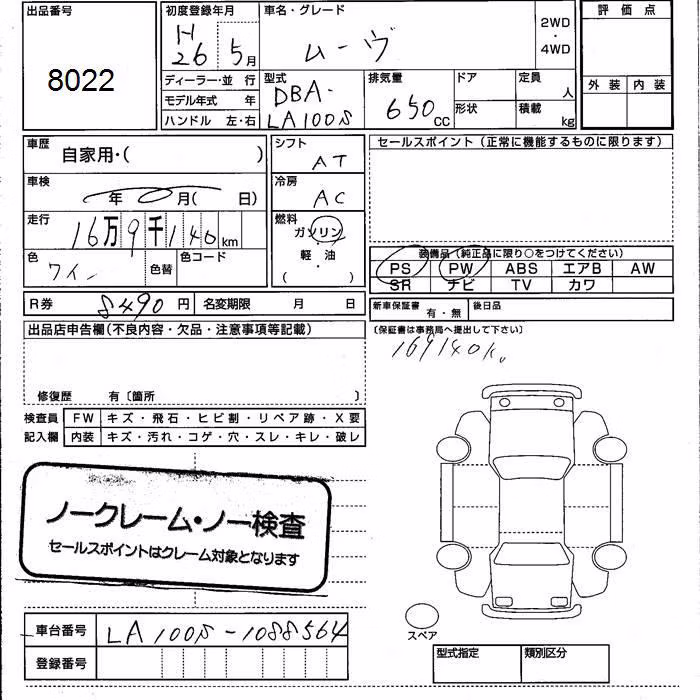 出品番号
8022
初度登録年月
H
26 5月
車名・グレード
ムーヴ
2WD
・
4WD
評価点
外装 内装
ディーラー・並 行
モデル年式 年
ハンドル 左・右
型式
DBA-
LA100S
排気量
650 CC
ドア
形状
定員
人
積載
kg
車歴
自家用・( )
シフト
AT
セールスポイント(正常に機能するものに限ります)
車検
年 月( 日)
冷房
AC
走行
16万9千140km
燃料
ガソリン
・
軽・油
( )
色
ワイン
色替
色コード
装備品(純正品に限り○をつけてください)
PS PW ABS エアB AW
SR ナビ TV カワ
R券 8490円
名変期限 月 日
新車保証書 有・無
後日品
(保証書は事務局へ提出して下さい)
169140K
出品店申告欄(不良内容・欠品・注意事項等記載)
修復歴 有〔箇所 〕
検査員 FW キズ・飛石・ヒビ割・リペア跡・X要
記入欄 内装 キズ・汚れ・コゲ・穴・スレ・キレ・破レ
ノークレーム・ノー検査
セールスポイントはクレーム対象となります
車台番号 LA100S-1088564
登録番号
スペア
型式指定
類別区分